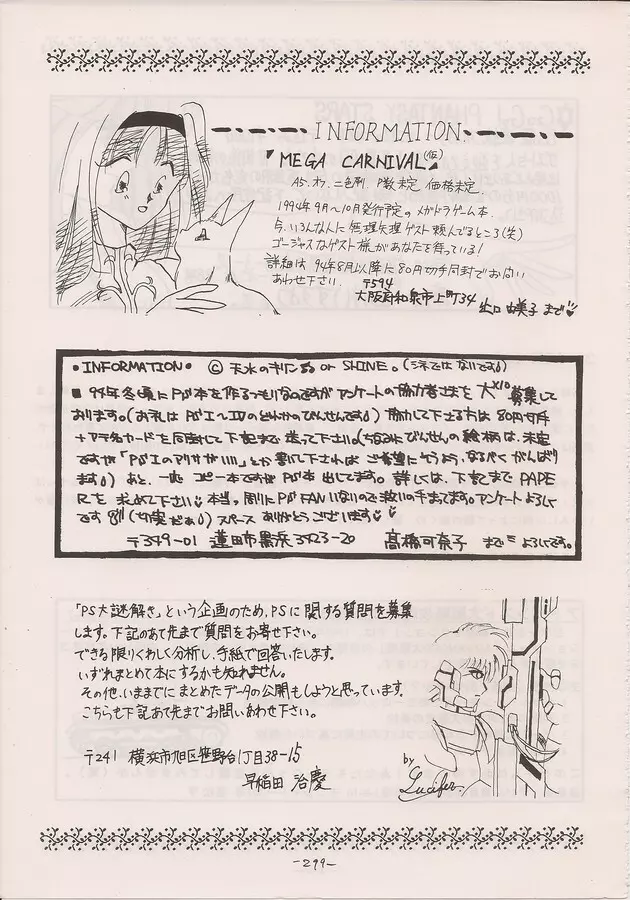 INFORMATION.
「MEGA CARNIVAL(仮)
A5.オフ.二色刷 P数未定 価格未定.
1994年9月〜10月発行予定のメガドラゲーム本
今、いろんな人に無理矢理ゲスト頼んでるところ(笑)
ゴージャスなゲスト様があなたを待っている!
詳細は '94年8月以降に80円切手同封でお問い
あわせ下さい. 〒594
大阪府和泉市上町34 出口由美子まで
•INFORMATION• © 天水のキリン or SHINE。(シネではないです)
■ 94年冬頃にPS本を作るつもりなのですがアンケートの協力者さまを大×10募集して
おります。(お礼はPSⅠ〜Ⅳのどれかのびんせんです) 協力して下さる方は80円切手
+アテ名カードを同封して下記まで送って下さい。(ちなみにびんせんの絵柄は、未定
ですが「PSⅠのアリサがいい」とか書いて下さればご希望にそうよう、なるべくがんばり
ます) あと、一応コピー本ですがPS本出してます。詳しくは、下記までPAPE
Rを求めて下さい 本当。周りにPS FANいないので救いの手まってます。アンケートよろしく
です (切実だぁ) スペースありがとうございます
〒349-01 蓮田市黒浜3423-20 髙橋可奈子 まで よろしくです。
「PS大謎解き」という企画のため、PSに関する質問を募集
します。下記のあて先まで質問をお寄せ下さい。
できる限りくわしく分析し、手紙で回答いたします。
いずれまとめて本にするかも知れません。
その他、いままでにまとめたデータの公開もしようと思っています。
こちらも下記あて先までお問いあわせ下さい。
〒241 横浜市旭区笹野台1丁目38-15
早稲田 治慶
by Lucifer.
-299-